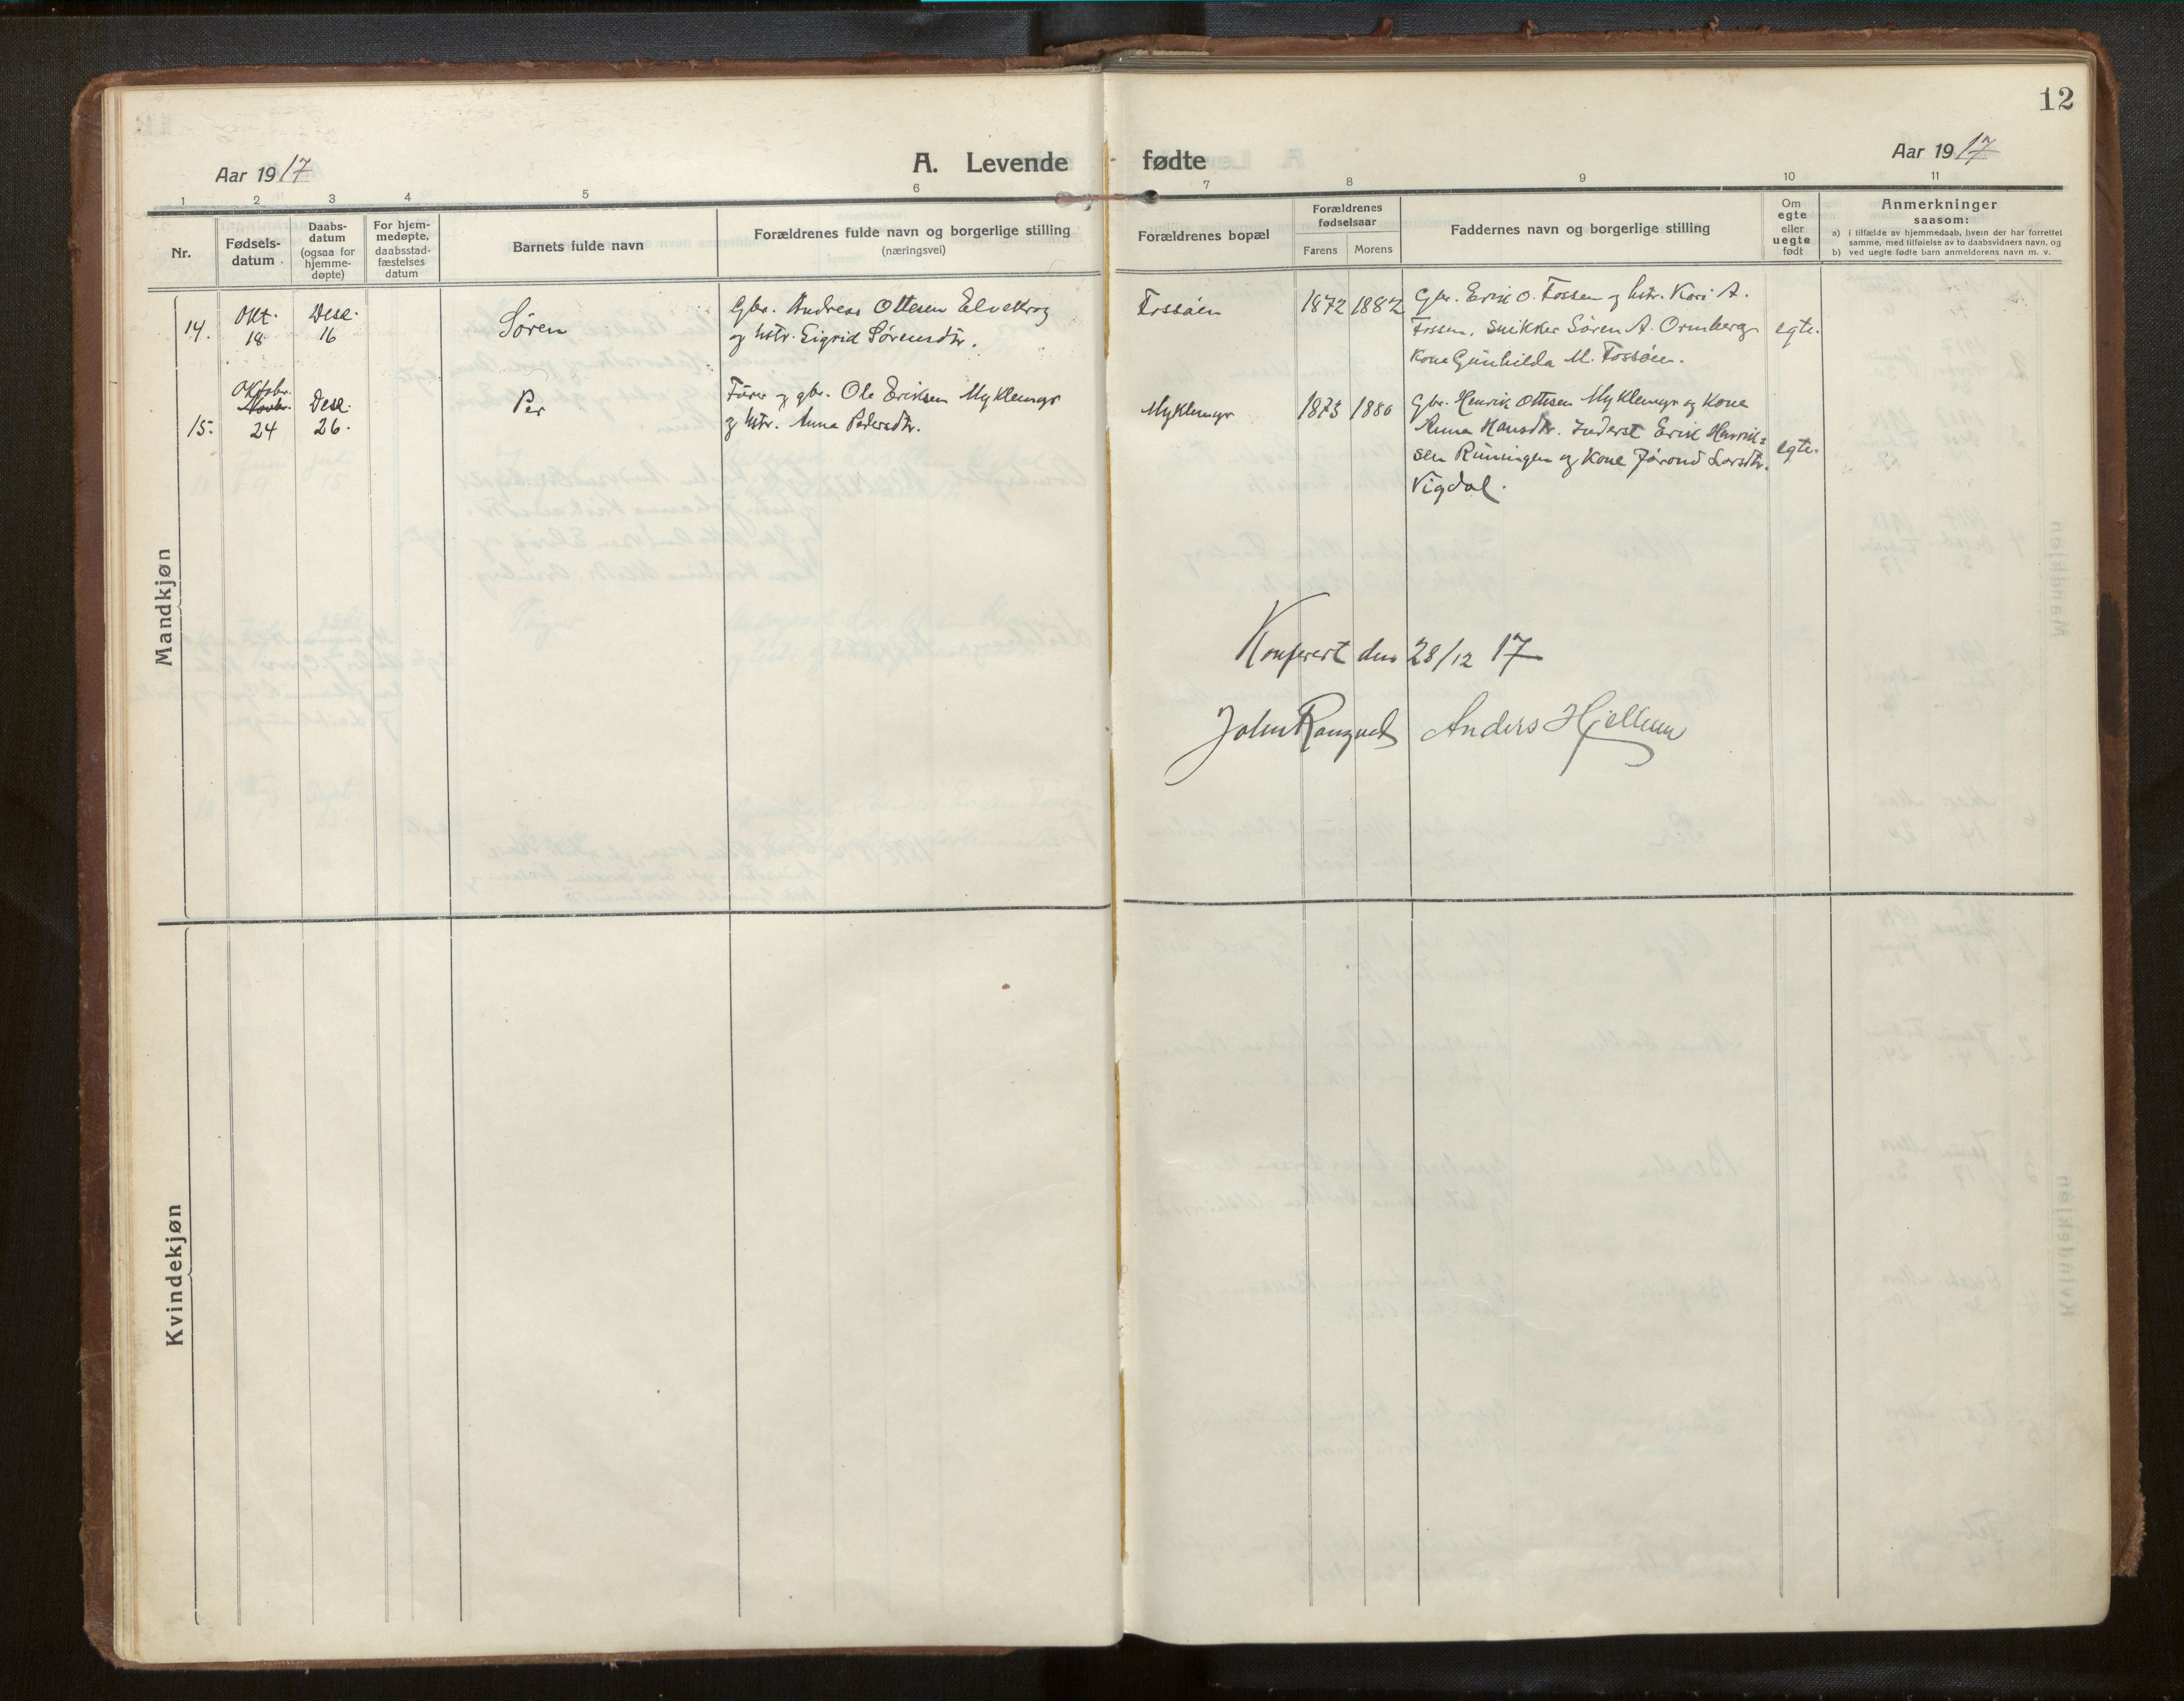 12
Aar 1917
A. Levende fødte
Aar 1917
1 2 3 4 5 6 7 8 9 10 11
Nr.
Fødsels-
datum
Daabs-
datum
(ogsaa for
hjemme-
døpte)
For hjem-
medøpte,
daabsstad-
fæstelses
datum
Barnets fulde navn
Forældrenes fulde navn og borgerlige stilling
(næringsvei)
Forældrenes bopæl
Forældrenes
fødselsaar
Farens Morens
Faddernes navn og borgerlige stilling
Om
egte
eller
uegte
født
Anmerkninger
saasom:
a) i tilfælde av hjemmedaab, hvem der har forrettet
samme, med tilføielse av to daabsvidners navn, og
b) ved uegte fødte barn anmelderens navn m. v.
Mandkjøn
14.
Okt.
18
Dese.
16
Søren
Gbr. Andreas Ottesen Elvekrog
og hstr. Sigrid Sørensdtr.
Fossøen
1872 1882
Gbr. Erik O. Fossen og hstr. Kari A.
Fossen. Snikker Søren A. Ormberg
Kone Gunhilda M. Fossøen.
egte.
15.
Oktobr.
Novbr.
24
Dese.
26.
Per
Fører og gbr. Ole Eriksen Myklemyr
og hstr. Anna Pedersdtr.
Myklemyr
1875 1880
Gbr. Henrik Ottesen Myklemyr og Kone
Anna Hansdtr. Inderst Erik Henrik=
sen Rünningen og Kone Jorond Larsdtr.
Vigdal.
egte.
Konferert den 28/12 17
John Anders Hjellum
Kvindekjøn